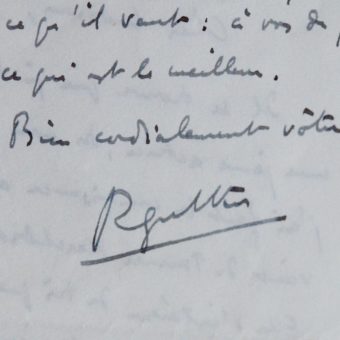 ce qu'il vaut : à vous de
ce qui est le meilleur.
Bien cordialement vôtre